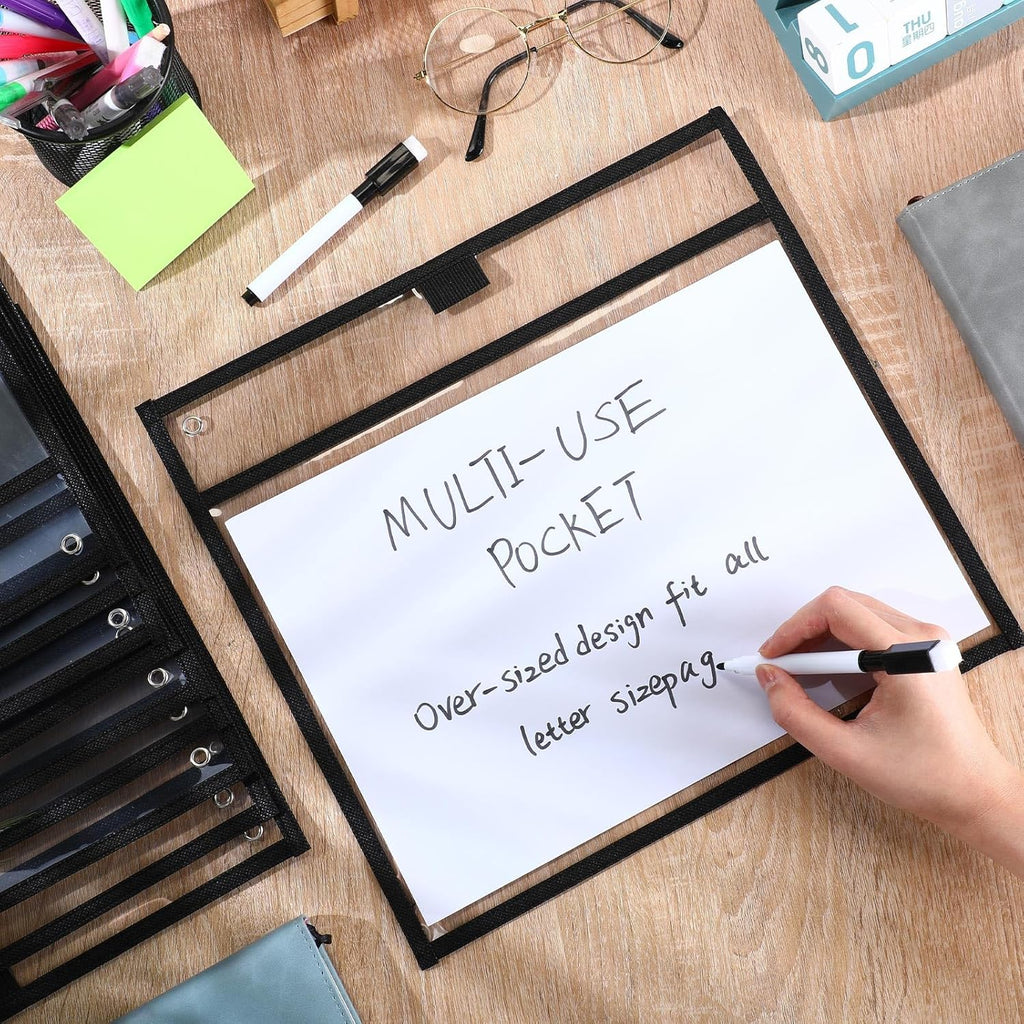 THU
星期四
10
8
MULTI-USE
POCKET
Over-sized design fit all
letter sizepag